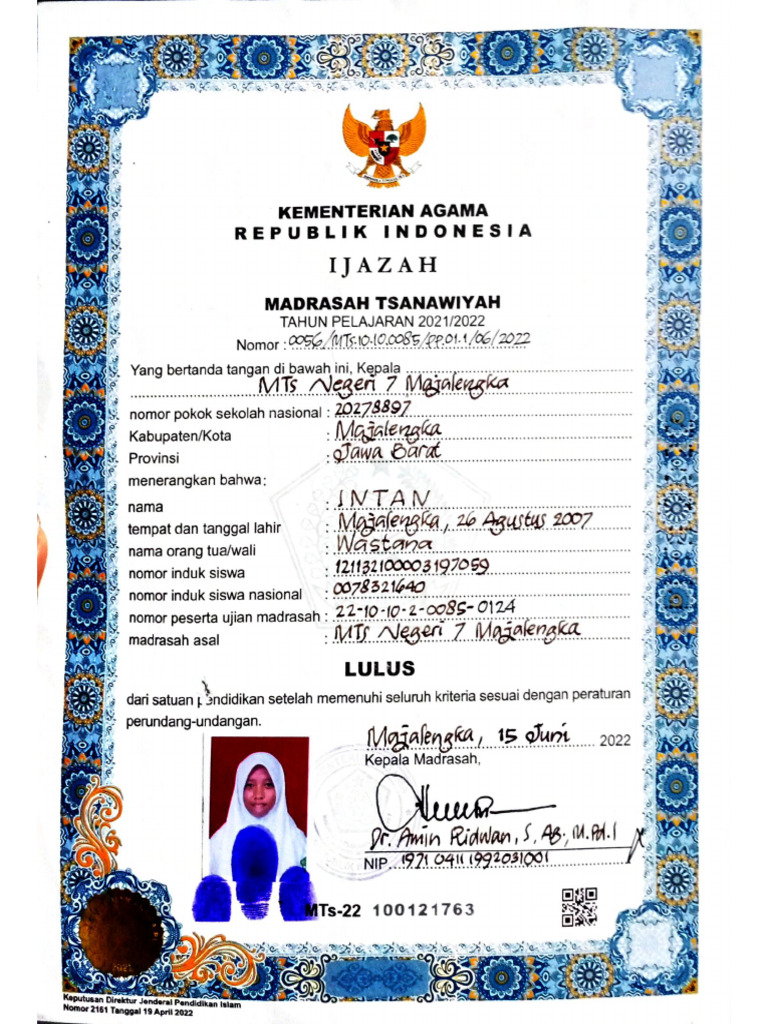 KEMENTERIAN AGAMA
REPUBLIK INDONESIA
IJAZAH
MADRASAH TSANAWIYAH
TAHUN PELAJARAN 2021/2022
Nomor : 0056/MTs.10.10.0085/PP.01.1/06/2022
Yang bertanda tangan di bawah ini, Kepala
MTs Negeri 7 Majalengka
nomor pokok sekolah nasional : 20278897
Kabupaten/Kota : Majalengka
Provinsi : Jawa Barat
menerangkan bahwa:
nama : INTAN
tempat dan tanggal lahir : Majalengka, 26 Agustus 2007
nama orang tua/wali : Wastana
nomor induk siswa : 121132100003197059
nomor induk siswa nasional : 0078321640
nomor peserta ujian madrasah : 22-10-10-2-0085-0124
madrasah asal : MTs Negeri 7 Majalengka
LULUS
dari satuan pendidikan setelah memenuhi seluruh kriteria sesuai dengan peraturan
perundang-undangan.
Majalengka, 15 Juni 2022
Kepala Madrasah,
Dr. Amin Ridwan, S, Ag., M.Pd.I
NIP. 1971 0411 1992031001
MTs-22 100121763
2022
Keputusan Direktur Jenderal Pendidikan Islam
Nomor 2161 Tanggal 19 April 2022